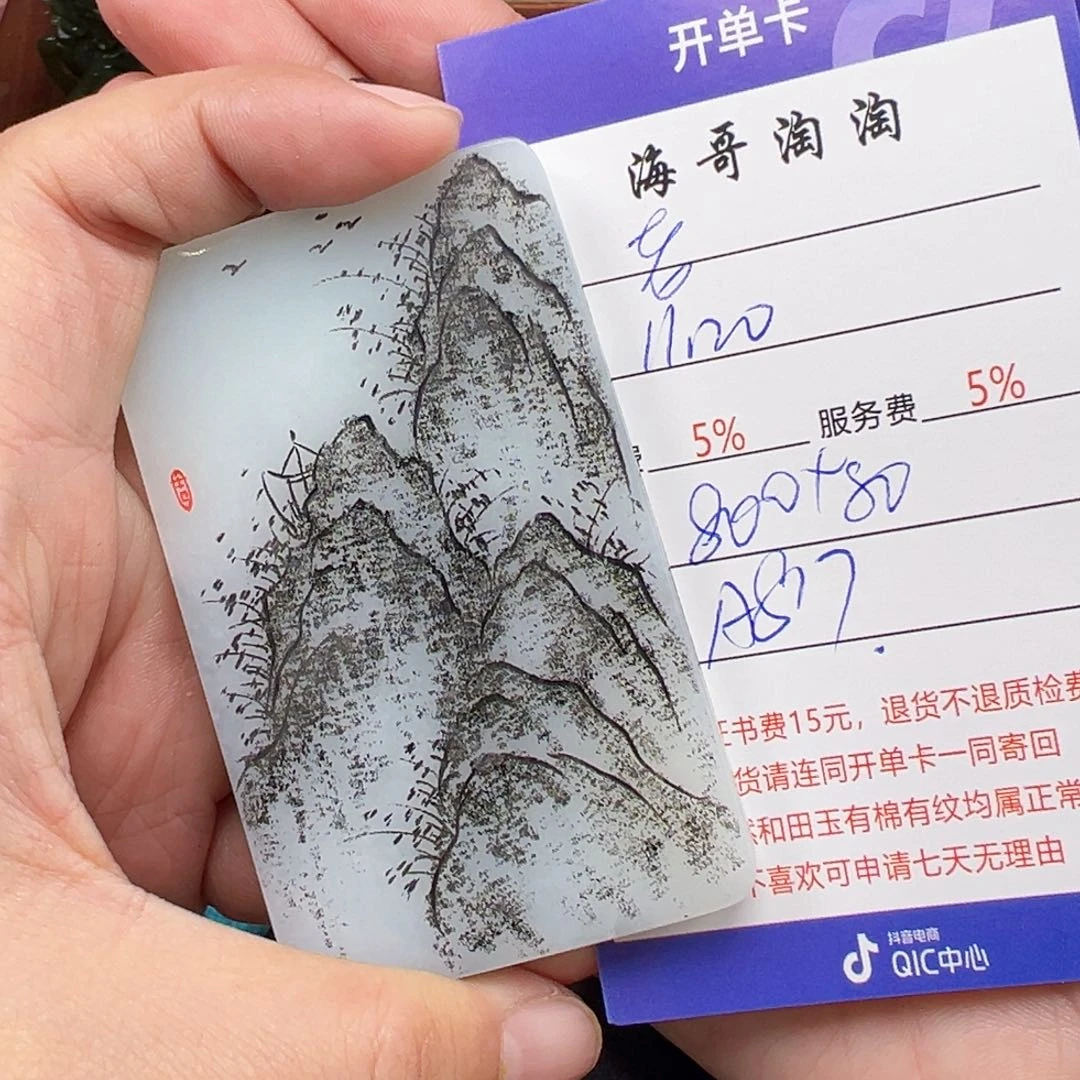 开单卡
海哥淘淘
11.20
5% 服务费 5%
800+80
A817.
证书费15元，退货不退质检费
货请连同开单卡一同寄回
和田玉有棉有纹均属正常
不喜欢可申请七天无理由
抖音电商
QIC中心